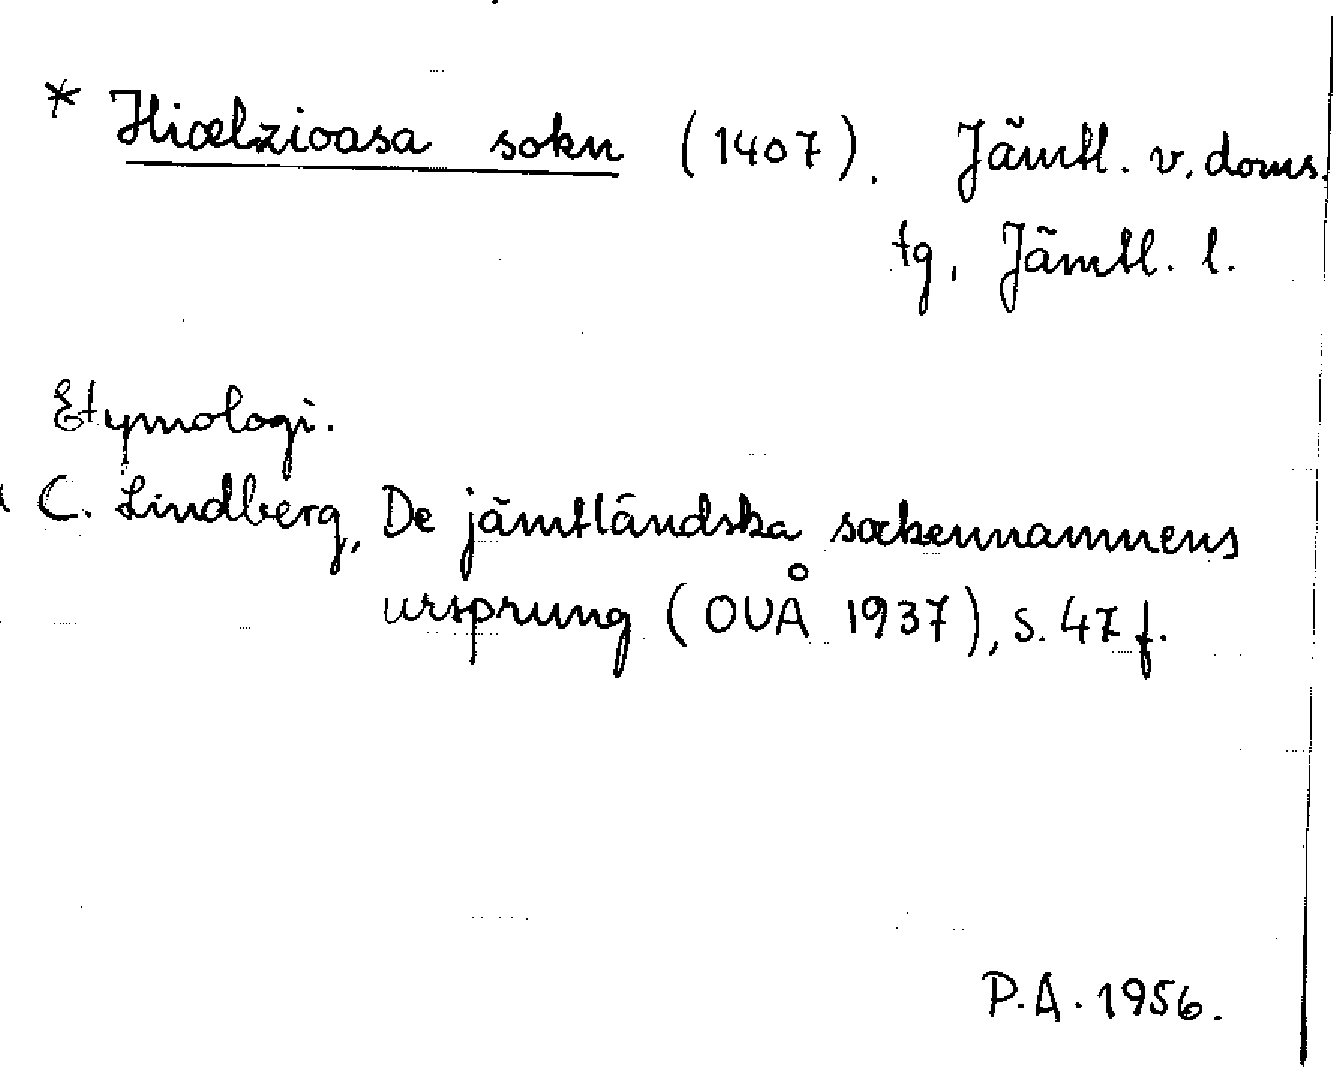 * Hiælzioasa sokn (1407). Jämtl. v. doms.
tg, Jämtl. l.
Etymologi.
C. Lindberg, De jämtländska sockennamnens
ursprung (OUÅ 1937), s. 47 f.
P.A. 1956.